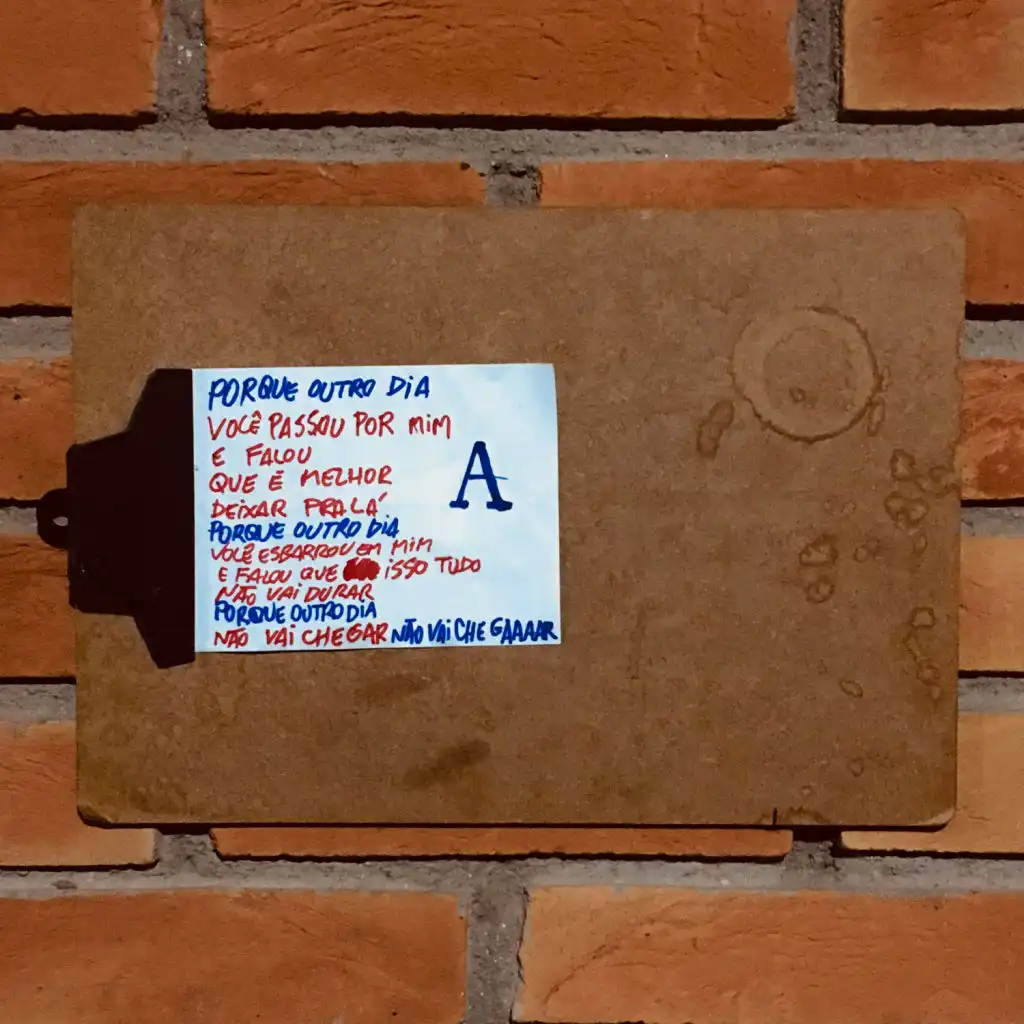 PORQUE OUTRO DIA
VOCÊ PASSOU POR MIM
E FALOU
QUE É MELHOR
DEIXAR PRA LÁ
PORQUE OUTRO DIA
VOCÊ ESBARROU EM MIM
E FALOU QUE ISSO TUDO
NÃO VAI DURAR
PORQUE OUTRO DIA
NÃO VAI CHEGAR NÃO VAI CHEGAAAAR
A